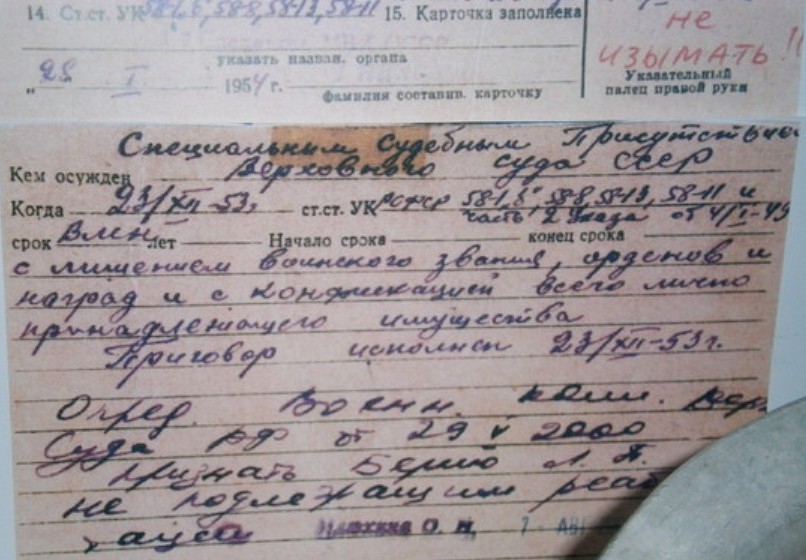 14. Ст.ст. УК 58-1„б”, 58-8, 58-13, 58-11 15. Карточка заполнена
не
изымать!!
указать назван. органа
„25“ I 1954 г.
фамилия составив. карточку
Указательный
палец правой руки
Специальным Судебным Присутствием
Кем осужден Верховного суда СССР
Когда 23/XII-53г ст.ст. УК РСФСР 58-1„б”, 58-8, 58-13, 58-11 и
часть 2 Указа от 4/I-49
срок ВМН лет Начало срока конец срока
с лишением воинского звания, орденов и
наград и с конфискацией всего лично
принадлежащего имущества
Приговор исполнен 23/XII-53г.
Опред. Военн. колл. Верх.
Суда РФ от 29 V 2000
признать Берию Л. П.
не подлежащим реаб
ации О. Н. 7 АВГ